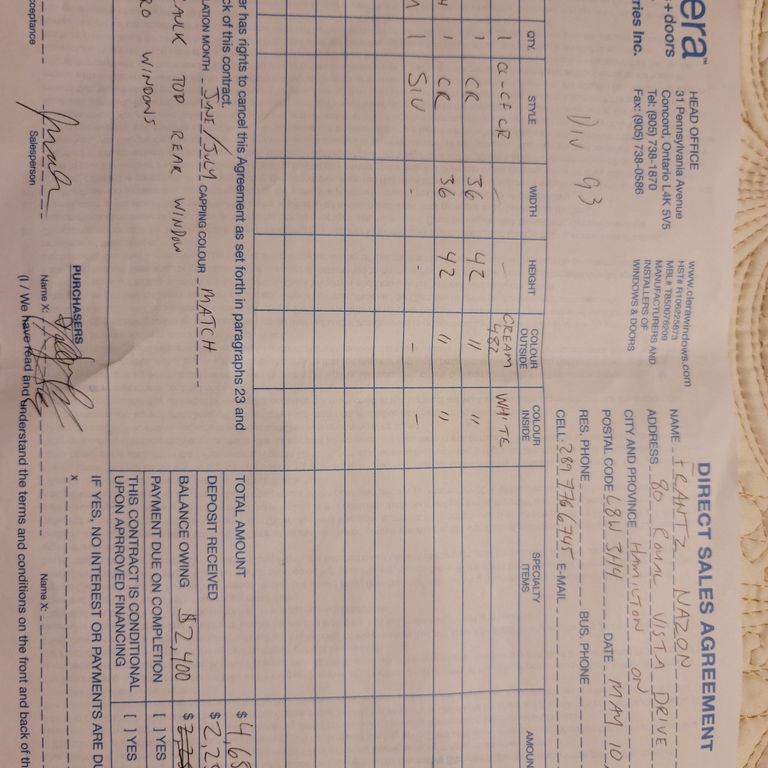 era™
+doors
ries Inc.
HEAD OFFICE
31 Pennsylvania Avenue
Concord, Ontario L4K 5V5
Tel: (905) 738-1870
Fax: (905) 738-0586
www.clerawindows.com
HST# R106225873
MBL# T850076209
MANUFACTURERS AND
INSTALLERS OF
WINDOWS & DOORS
DIV 93
DIRECT SALES AGREEMENT
NAME FRANTZ NAZON
ADDRESS 80 ROYAL VISTA DRIVE
CITY AND PROVINCE HAMILTON ON
POSTAL CODE L8W 3H4 DATE MAY 10
RES. PHONE BUS. PHONE
CELL: 289 776 6745 E-MAIL
QTY. STYLE WIDTH HEIGHT COLOUR OUTSIDE COLOUR INSIDE SPECIALTY ITEMS AMOUN
1 CL-CF CR - - CREAM 482 WHITE
1 CR 36 42 " "
1 CR 36 42 " "
1 SIU - - - -
er has rights to cancel this Agreement as set forth in paragraphs 23 and
ck of this contract.
LATION MONTH JUNE/JULY CAPPING COLOUR MATCH
CAULK TOP REAR WINDOW
WINDOWS
TOTAL AMOUNT $ 4,65
DEPOSIT RECEIVED $ 2,25
BALANCE OWING $2,400 $
PAYMENT DUE ON COMPLETION [ ] YES
THIS CONTRACT IS CONDITIONAL
UPON APPROVED FINANCING [ ] YES
IF YES, NO INTEREST OR PAYMENTS ARE DU
cceptance
Salesperson
PURCHASERS
x
Name X: Name X:
(I / We have read and understand the terms and conditions on the front and back of th